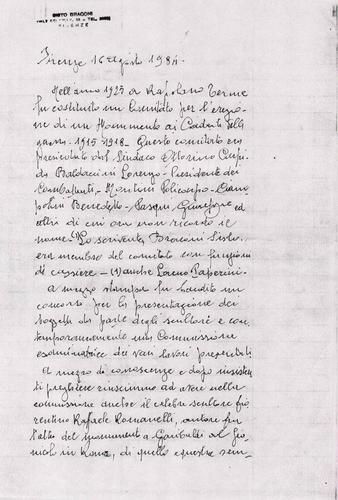 SISTO BRACONI
FIRENZE
Firenze 16 Agosto 1984.
Nell'anno 1923 a Rapolano Terme
fu costituito un Comitato per l'erezio-
ne di un Monumento ai Caduti della
guerra 1915-1918. Questo comitato era
presieduto dal Sindaco Ottorino
da Baldaccini Lorenzo - Presidente dei
Combattenti - Martini Policarpo - Ciam
polini Benedetto - Giuseppe ed
altri di cui ora non ricordo il
nome. Lo scrivente, Braconi Sisto,
era membro del comitato con funzioni
di cassiere - (1) anche Paperini -
A mezzo stampa fu bandito un
concorso per la presentazione dei
bozzetti da parte degli scultori e con
temporaneamente una Commissione
esaminatrice dei vari lavori presentati.
A mezzo di conoscenze e dopo insisten
ti preghiere riuscimmo ad avere nella
commissione anche il celebre scultore fio
rentino Raffaele Romanelli, autore fra
l'altro del monumento a Garibaldi al Gia
nicolo in Roma, di quello equestre sem-